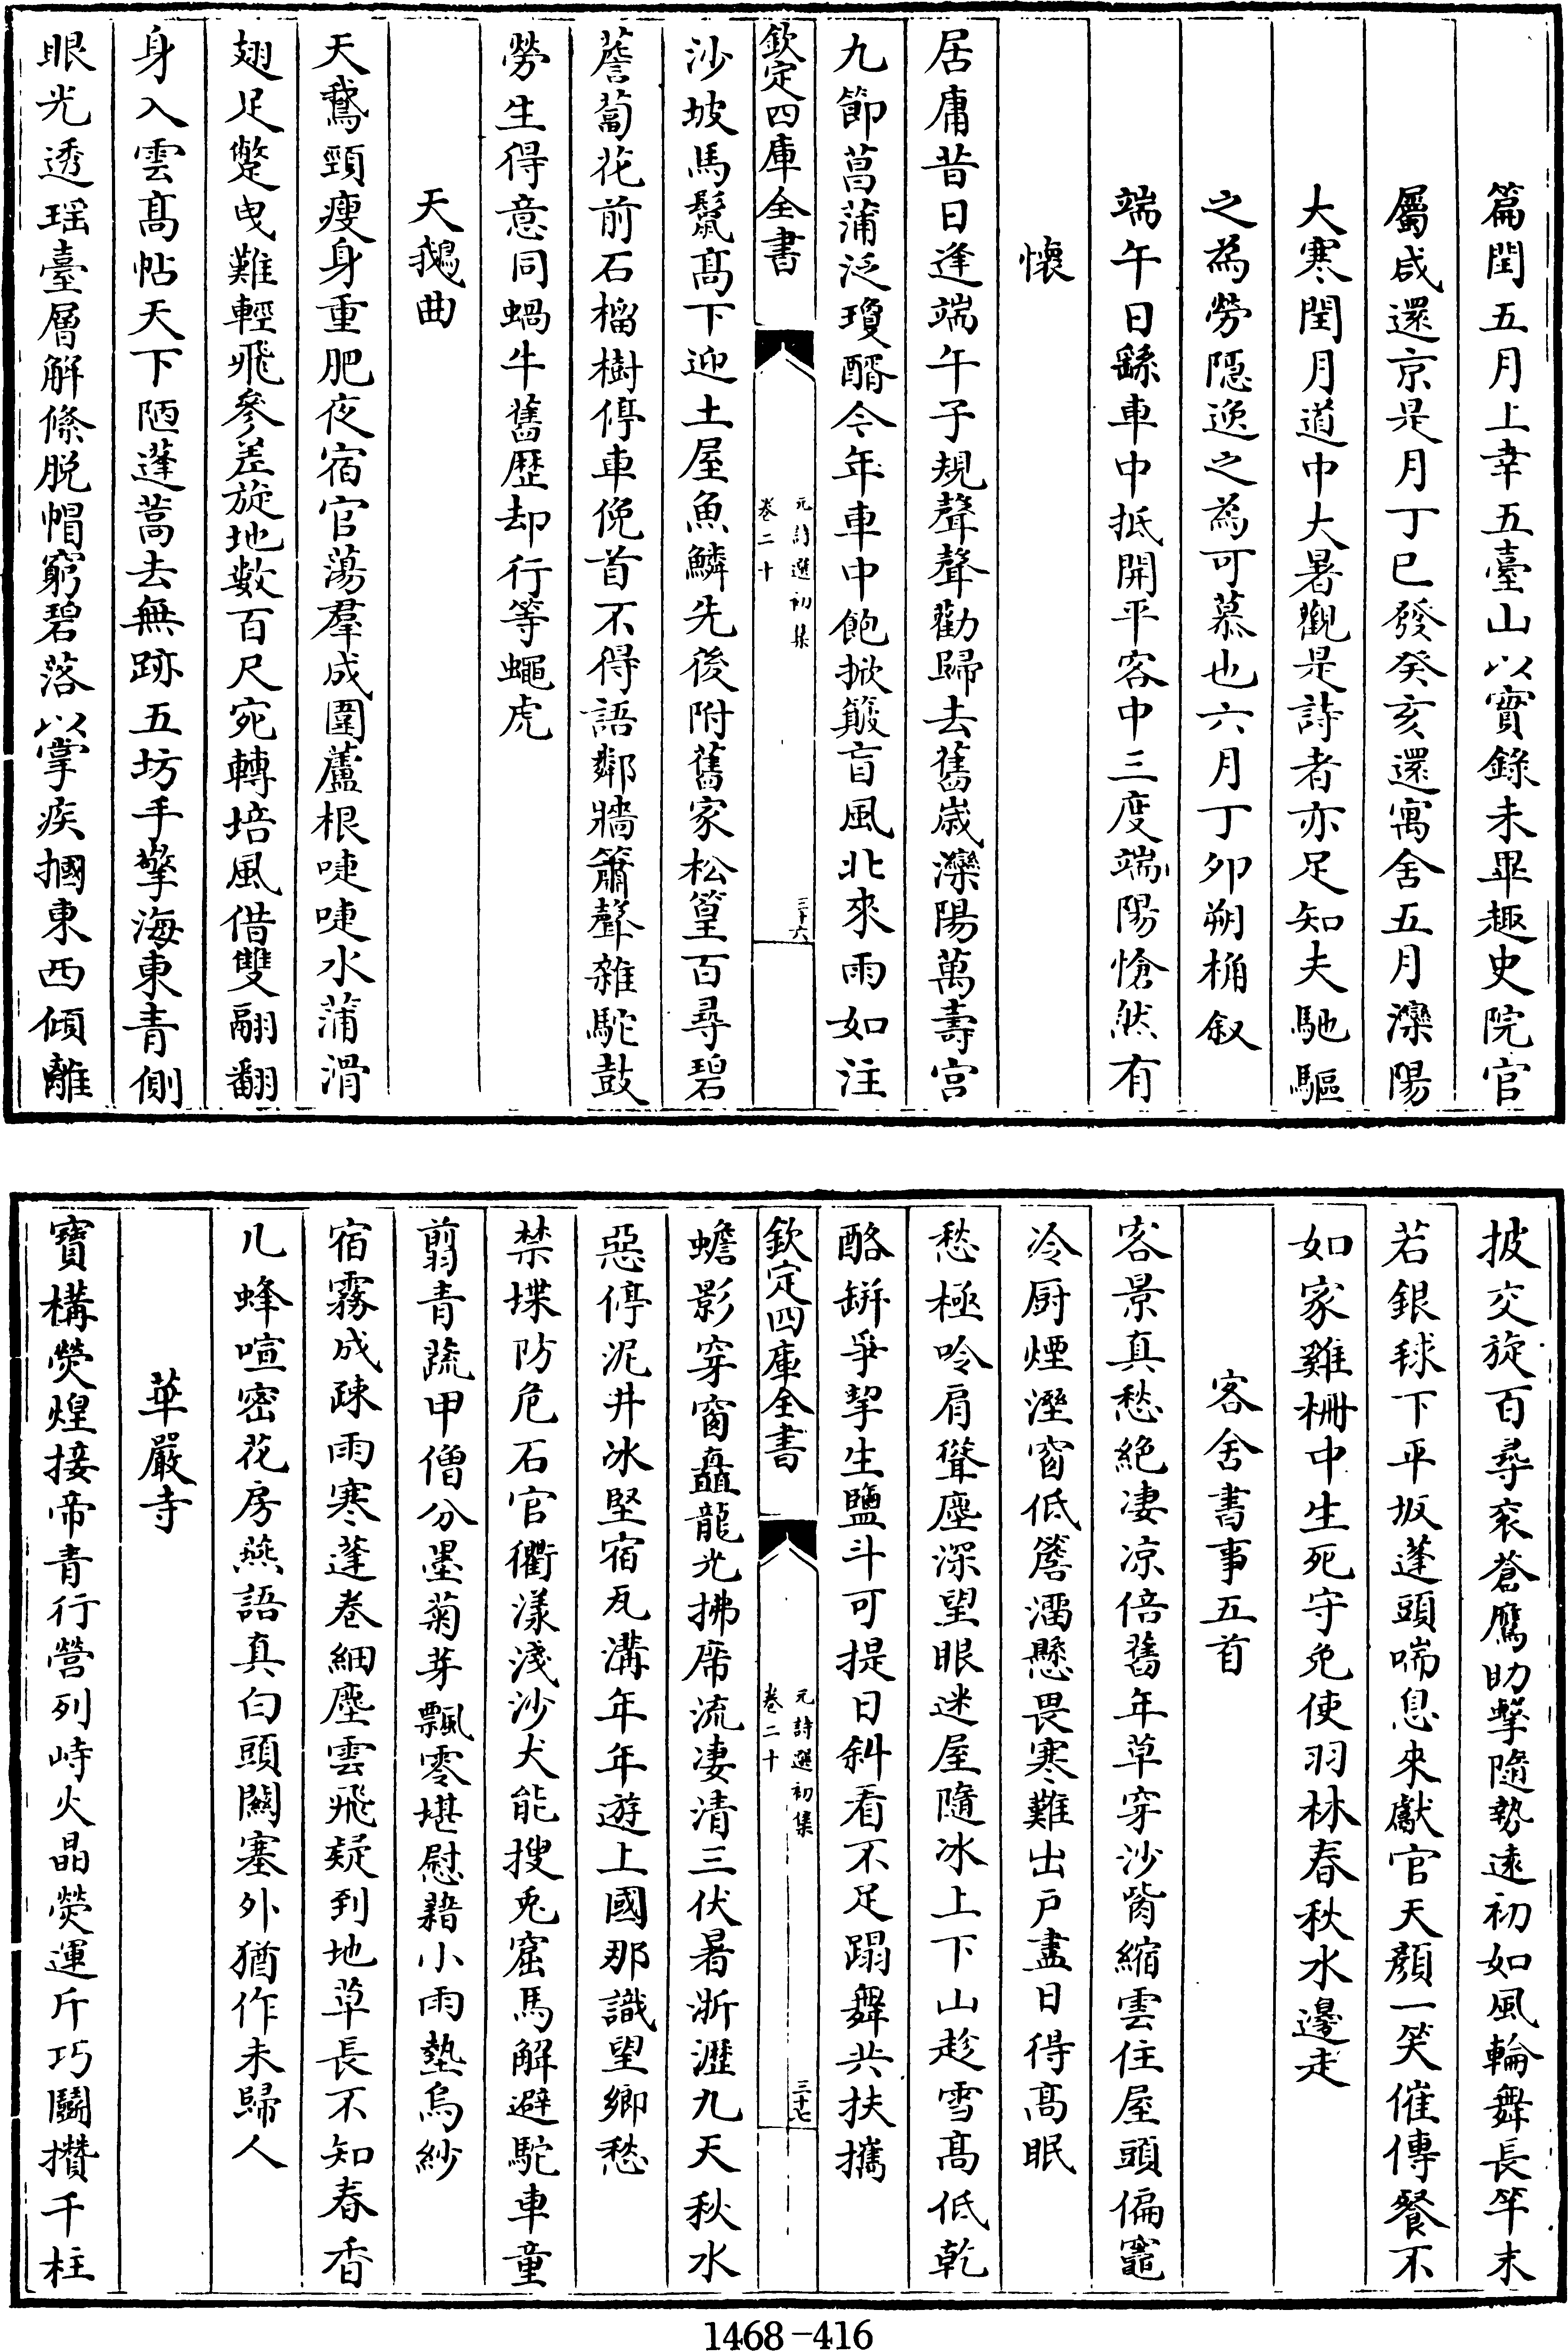 篇閏五月上幸五臺山以實錄未畢趣史院官
屬咸還京是月丁巳發癸亥還寓舍五月灤陽
大寒閏月道中大暑觀是詩者亦足知夫馳驅
之為勞隱逸之為可慕也六月丁卯朔桷叙
端午日繇車中抵開平客中三度端陽愴然有
懷
居庸昔日逢端午子規聲聲勸歸去舊歲灤陽萬壽宮
九節菖蒲泛瓊醑今年車中飽掀簸盲風北來雨如注
欽定四庫全書
元詩選初集
卷二十
三十六
沙坡馬鬣高下迎土屋魚鱗先後附舊家松篁百尋碧
薝蔔花前石榴樹停車俛首不得語鄰牆簫聲雜駝鼓
勞生得意同蝸牛舊歷却行等蠅虎
天鵝曲
天鵞頸瘦身重肥夜宿官蕩羣成圍蘆根唼唼水蒲滑
翅足蹩曳難輕飛參差旋地數百尺宛轉培風借雙翮翻
身入雲高帖天下陋蓬蒿去無跡五坊手擎海東青側
眼光透瑶臺層解絛脱帽窮碧落以掌疾摑東西傾離
披交旋百尋衮蒼鷹助擊隨勢遠初如風輪舞長竿末
若銀毬下平坂蓬頭喘息來獻官天顏一笑催傳餐不
如家雞栅中生死守免使羽林春秋水邊走
客舍書事五首
客景真愁絶凄凉倍舊年草穿沙觜縮雲住屋頭偏竈
冷厨煙溼窗低簷溜懸畏寒難出户盡日得高眠
愁極吟肩聳塵深望眼迷屋隨冰上下山趁雪高低乾
酪缾爭挈生鹽斗可提日斜看不足蹋舞共扶攜
欽定四庫全書
元詩選初集
卷二十
三十七
蟾影穿窗矗龍光拂席流凄清三伏暑淅瀝九天秋水
惡停泥井冰堅宿瓦溝年年遊上國那識望鄉愁
禁堞防危石官衢漾淺沙犬能搜兎窟馬解避駝車童
翦青蔬甲僧分墨菊芽飄零堪慰藉小雨墊烏紗
宿霧成疎雨寒蓬卷細塵雲飛疑到地草長不知春香
几蜂喧密花房燕語真白頭關塞外猶作未歸人
華嚴寺
寶構熒煌接帝青行營列峙火晶熒運斤巧鬬攢千柱
1468-416